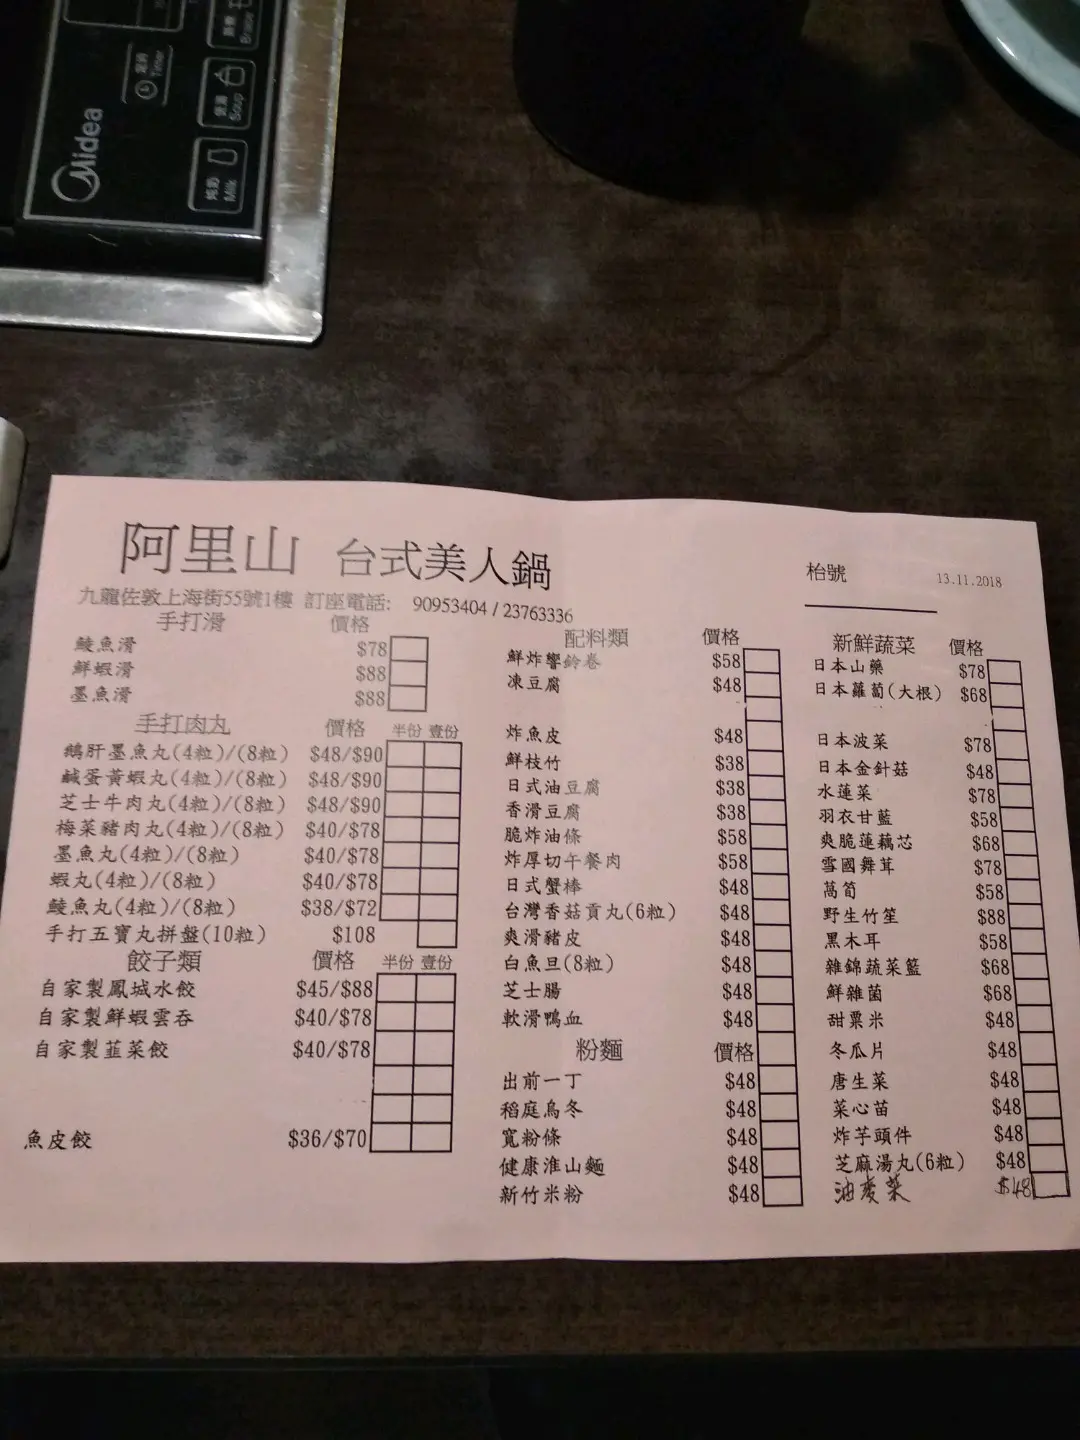 Midea
定時
Timer
Soup
Milk
阿里山 台式美人鍋
枱號
13.11.2018
九龍佐敦上海街55號1樓 訂座電話: 90953404 / 23763336
手打滑 價格
鯪魚滑 $78
鮮蝦滑 $88
墨魚滑 $88
手打肉丸 價格 半份 壹份
鵝肝墨魚丸(4粒)/(8粒) $48/$90
鹹蛋黃蝦丸(4粒)/(8粒) $48/$90
芝士牛肉丸(4粒)/(8粒) $48/$90
梅菜豬肉丸(4粒)/(8粒) $40/$78
墨魚丸(4粒)/(8粒) $40/$78
蝦丸(4粒)/(8粒) $40/$78
鯪魚丸(4粒)/(8粒) $38/$72
手打五寶丸拼盤(10粒) $108
餃子類 價格 半份 壹份
自家製鳳城水餃 $45/$88
自家製鮮蝦雲吞 $40/$78
自家製韮菜餃 $40/$78
魚皮餃 $36/$70
配料類 價格
鮮炸響鈴卷 $58
凍豆腐 $48
炸魚皮 $48
鮮枝竹 $38
日式油豆腐 $38
香滑豆腐 $38
脆炸油條 $58
炸厚切午餐肉 $58
日式蟹棒 $48
台灣香菇貢丸(6粒) $48
爽滑豬皮 $48
白魚旦(8粒) $48
芝士腸 $48
軟滑鴨血 $48
粉麵 價格
出前一丁 $48
稻庭烏冬 $48
寬粉條 $48
健康淮山麵 $48
新竹米粉 $48
新鮮蔬菜 價格
日本山藥 $78
日本蘿蔔(大根) $68
日本波菜 $78
日本金針菇 $48
水蓮菜 $78
羽衣甘藍 $58
爽脆蓮藕芯 $68
雪國舞茸 $78
萵筍 $58
野生竹笙 $88
黑木耳 $58
雜錦蔬菜籃 $68
鮮雜菌 $68
甜粟米 $48
冬瓜片 $48
唐生菜 $48
菜心苗 $48
炸芋頭件 $48
芝麻湯丸(6粒) $48
油麥菜 $48